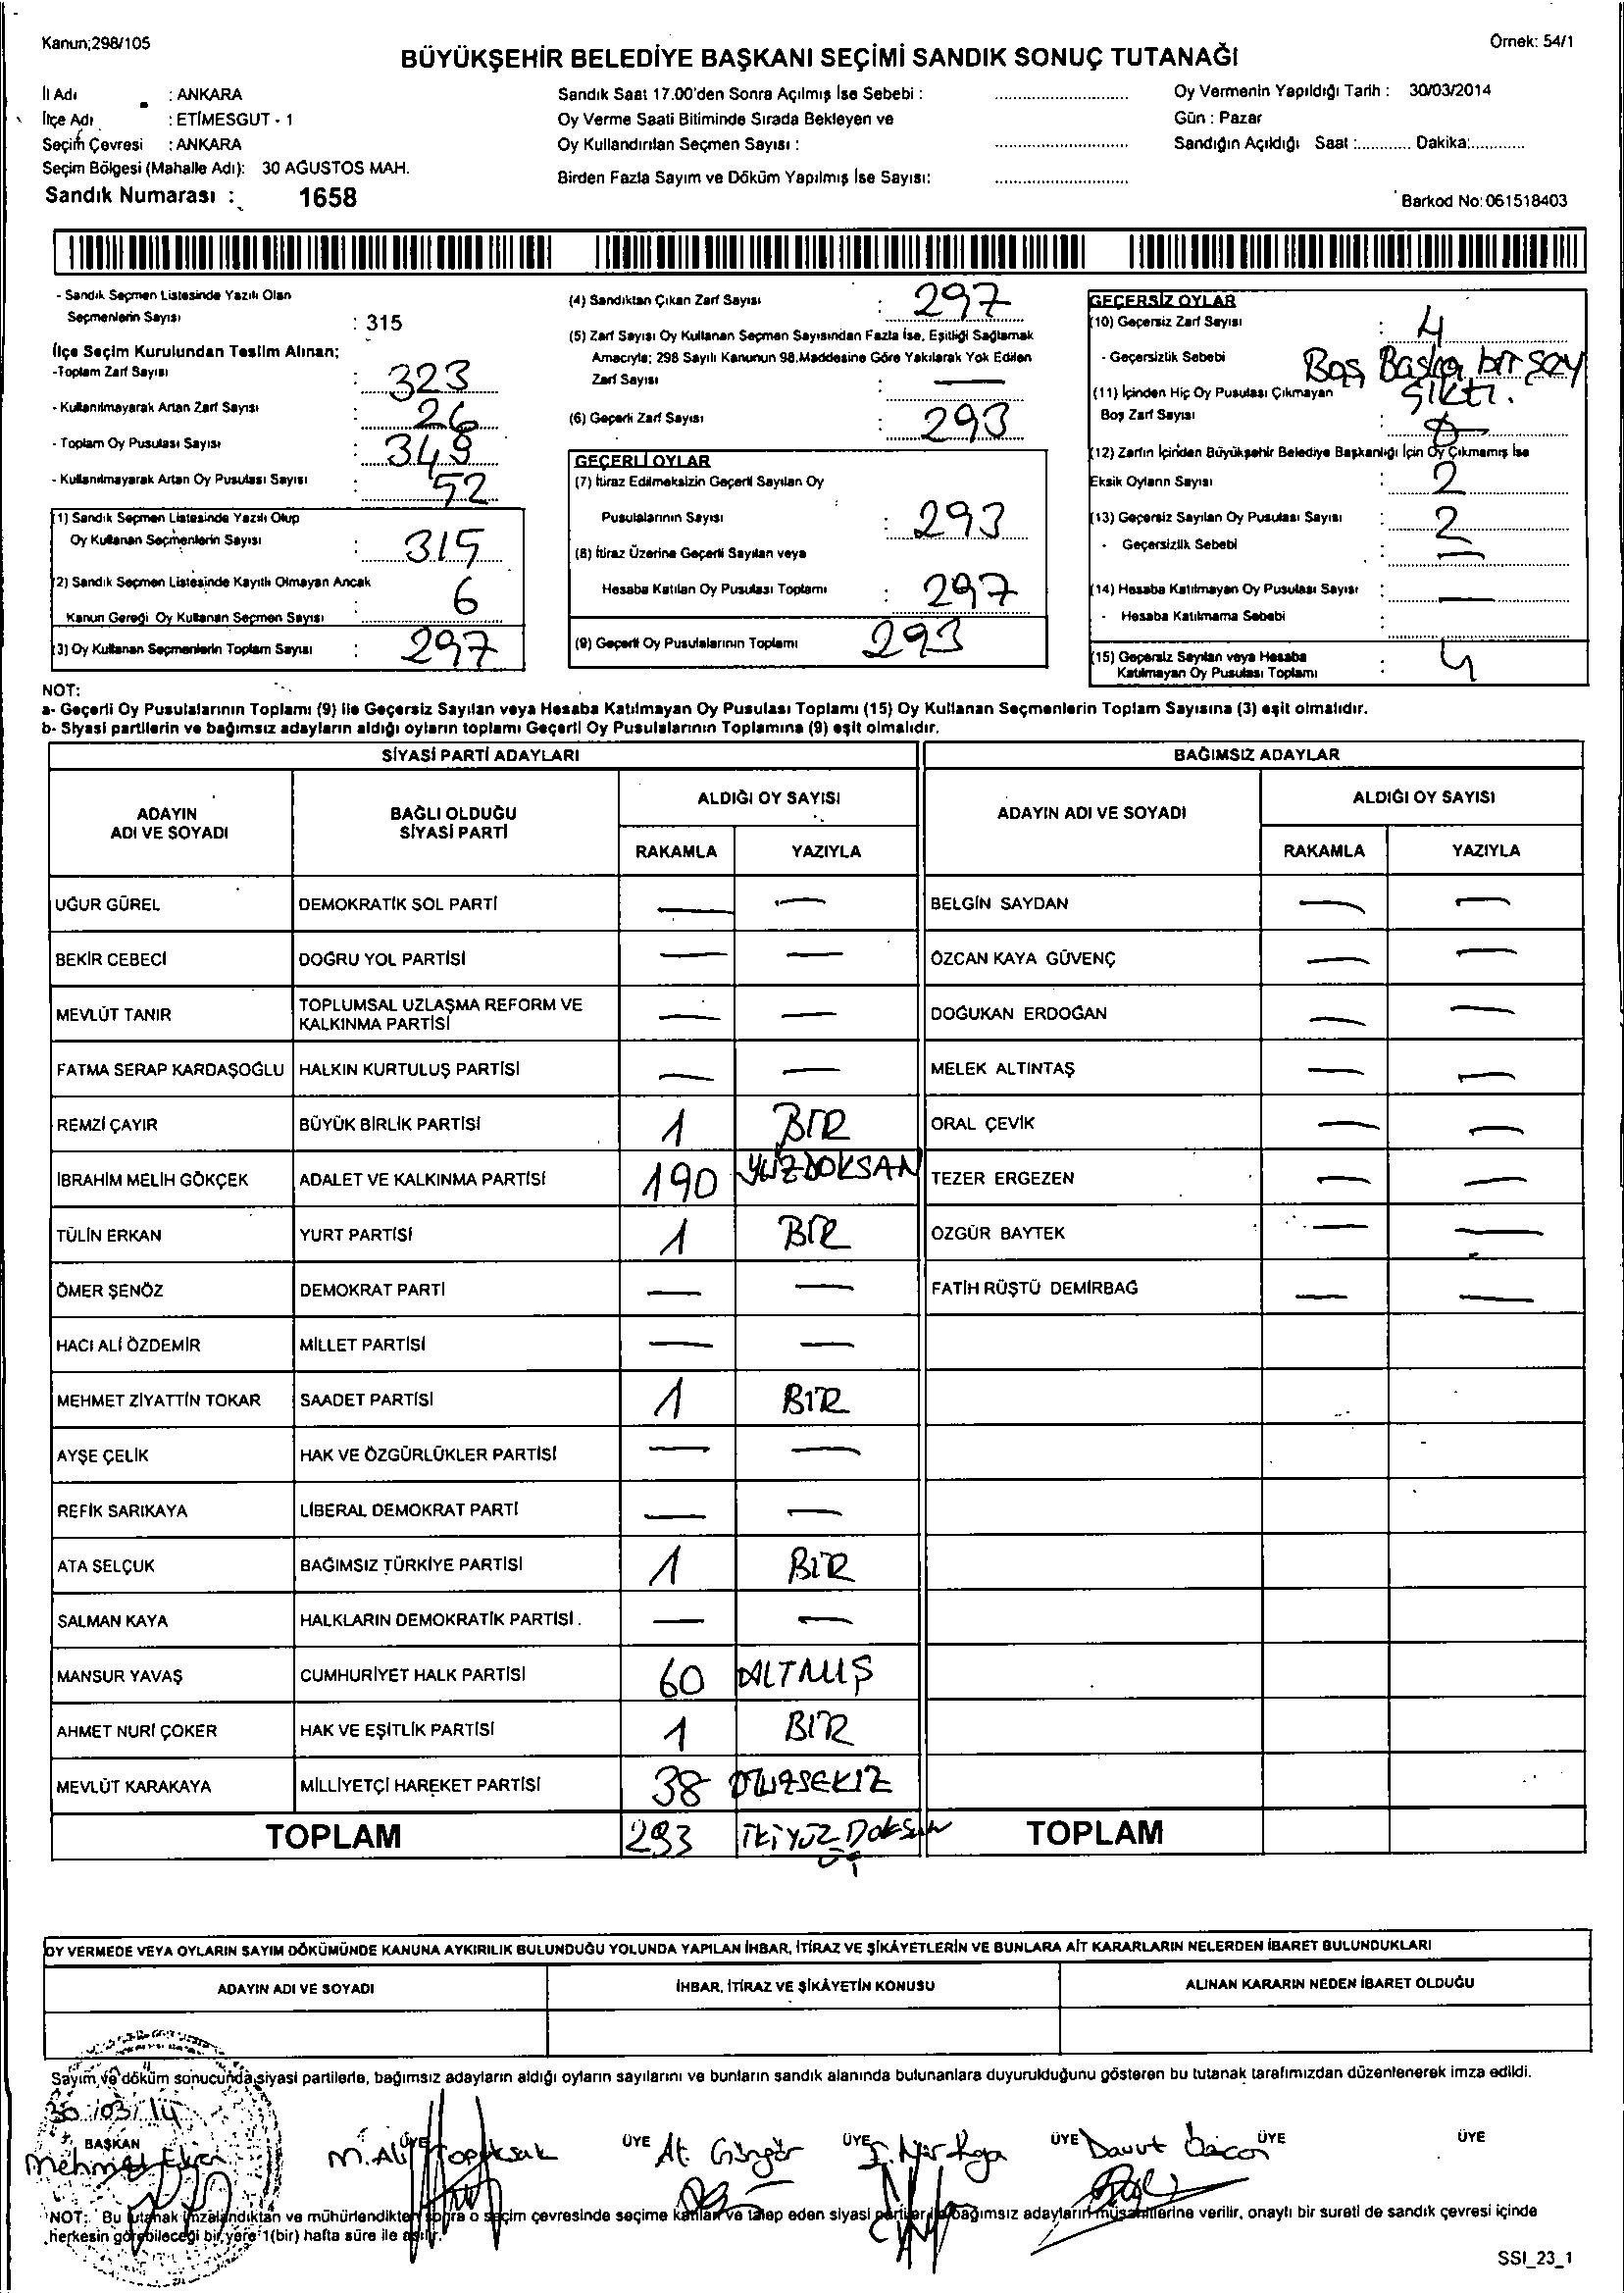 Kanun;298/105
Örnek: 54/1
BÜYÜKŞEHİR BELEDİYE BAŞKANI SEÇİMİ SANDIK SONUÇ TUTANAĞI
İl Adı : ANKARA
İlçe Adı : ETİMESGUT - 1
Seçim Çevresi : ANKARA
Seçim Bölgesi (Mahalle Adı): 30 AĞUSTOS MAH.
Sandık Numarası : 1658
Sandık Saat 17.00'den Sonra Açılmış İse Sebebi :
Oy Verme Saati Bitiminde Sırada Bekleyen ve
Oy Kullandırılan Seçmen Sayısı :
Birden Fazla Sayım ve Döküm Yapılmış İse Sayısı:
Oy Vermenin Yapıldığı Tarih : 30/03/2014
Gün : Pazar
Sandığın Açıldığı Saat :............ Dakika:............
Barkod No: 061518403
- Sandık Seçmen Listesinde Yazılı Olan
Seçmenlerin Sayısı : 315
İlçe Seçim Kurulundan Teslim Alınan;
-Toplam Zarf Sayısı : 323
- Kullanılmayarak Artan Zarf Sayısı : 26
- Toplam Oy Pusulası Sayısı : 349
- Kullanılmayarak Artan Oy Pusulası Sayısı : 52
(1) Sandık Seçmen Listesinde Yazılı Olup
Oy Kullanan Seçmenlerin Sayısı : 315
(2) Sandık Seçmen Listesinde Kayıtlı Olmayan Ancak
Kanun Gereği Oy Kullanan Seçmen Sayısı : 6
(3) Oy Kullanan Seçmenlerin Toplam Sayısı : 297
(4) Sandıktan Çıkan Zarf Sayısı : 297
(5) Zarf Sayısı Oy Kullanan Seçmen Sayısından Fazla İse, Eşitliği Sağlamak
Amacıyla; 298 Sayılı Kanunun 98.Maddesine Göre Yakılarak Yok Edilen
Zarf Sayısı : —
(6) Geçerli Zarf Sayısı : 293
GEÇERLİ OYLAR
(7) İtiraz Edilmeksizin Geçerli Sayılan Oy
Pusulalarının Sayısı : 293
(8) İtiraz Üzerine Geçerli Sayılan veya
Hesaba Katılan Oy Pusulası Toplamı : 297
(9) Geçerli Oy Pusulalarının Toplamı 293
GEÇERSİZ OYLAR
(10) Geçersiz Zarf Sayısı : 4
- Geçersizlik Sebebi Boş Başka bir şey
çıktı.
(11) İçinden Hiç Oy Pusulası Çıkmayan
Boş Zarf Sayısı
(12) Zarfın İçinden Büyükşehir Belediye Başkanlığı İçin Oy Çıkmamış İse
Eksik Oyların Sayısı : 2
(13) Geçersiz Sayılan Oy Pusulası Sayısı : 2
- Geçersizlik Sebebi : —
(14) Hesaba Katılmayan Oy Pusulası Sayısı : —
- Hesaba Katılmama Sebebi :
(15) Geçersiz Sayılan veya Hesaba
Katılmayan Oy Pusulası Toplamı : 4
NOT:
a- Geçerli Oy Pusulalarının Toplamı (9) ile Geçersiz Sayılan veya Hesaba Katılmayan Oy Pusulası Toplamı (15) Oy Kullanan Seçmenlerin Toplam Sayısına (3) eşit olmalıdır.
b- Siyasi partilerin ve bağımsız adayların aldığı oyların toplamı Geçerli Oy Pusulalarının Toplamına (9) eşit olmalıdır.
SİYASİ PARTİ ADAYLARI BAĞIMSIZ ADAYLAR
ADAYIN
ADI VE SOYADI
BAĞLI OLDUĞU
SİYASİ PARTİ
ALDIĞI OY SAYISI
RAKAMLA YAZIYLA
ADAYIN ADI VE SOYADI
ALDIĞI OY SAYISI
RAKAMLA YAZIYLA
UĞUR GÜREL DEMOKRATİK SOL PARTİ — — BELGİN SAYDAN — —
BEKİR CEBECİ DOĞRU YOL PARTİSİ — — ÖZCAN KAYA GÜVENÇ — —
MEVLÜT TANIR TOPLUMSAL UZLAŞMA REFORM VE
KALKINMA PARTİSİ — — DOĞUKAN ERDOĞAN — —
FATMA SERAP KARDAŞOĞLU HALKIN KURTULUŞ PARTİSİ — — MELEK ALTINTAŞ — —
REMZİ ÇAYIR BÜYÜK BİRLİK PARTİSİ 1 BİR ORAL ÇEVİK — —
İBRAHİM MELİH GÖKÇEK ADALET VE KALKINMA PARTİSİ 190 YÜZDOKSAN TEZER ERGEZEN — —
TÜLİN ERKAN YURT PARTİSİ 1 BİR ÖZGÜR BAYTEK — —
ÖMER ŞENÖZ DEMOKRAT PARTİ — — FATİH RÜŞTÜ DEMİRBAĞ — —
HACI ALİ ÖZDEMİR MİLLET PARTİSİ — —
MEHMET ZİYATTİN TOKAR SAADET PARTİSİ 1 BİR
AYŞE ÇELİK HAK VE ÖZGÜRLÜKLER PARTİSİ — —
REFİK SARIKAYA LİBERAL DEMOKRAT PARTİ — —
ATA SELÇUK BAĞIMSIZ TÜRKİYE PARTİSİ 1 BİR
SALMAN KAYA HALKLARIN DEMOKRATİK PARTİSİ — —
MANSUR YAVAŞ CUMHURİYET HALK PARTİSİ 60 ALTMIŞ
AHMET NURİ ÇOKER HAK VE EŞİTLİK PARTİSİ 1 BİR
MEVLÜT KARAKAYA MİLLİYETÇİ HAREKET PARTİSİ 38 OTUZSEKİZ
TOPLAM 293 İKİYÜZ Doksan üç TOPLAM
OY VERMEDE VEYA OYLARIN SAYIM DÖKÜMÜNDE KANUNA AYKIRILIK BULUNDUĞU YOLUNDA YAPILAN İHBAR, İTİRAZ VE ŞİKÂYETLERİN VE BUNLARA AİT KARARLARIN NELERDEN İBARET BULUNDUKLARI
ADAYIN ADI VE SOYADI İHBAR, İTİRAZ VE ŞİKÂYETİN KONUSU ALINAN KARARIN NEDEN İBARET OLDUĞU
Sayım ve döküm sonucunda siyasi partilerle, bağımsız adayların aldığı oyların sayılarını ve bunların sandık alanında bulunanlara duyurulduğunu gösteren bu tutanak tarafımızdan düzenlenerek imza edildi.
30/03/14
BAŞKAN ÜYE ÜYE ÜYE ÜYE ÜYE ÜYE
Mehmet M. Ali Güngör Davut
NOT: Bu tutanak imzalandıktan ve mühürlendikten sonra o seçim çevresinde seçime katılan ve talep eden siyasi partiler ile bağımsız adayların müşahitlerine verilir, onaylı bir sureti de sandık çevresi içinde
herkesin görebileceği bir yere 1(bir) hafta süre ile asılır.
SSI_23_1